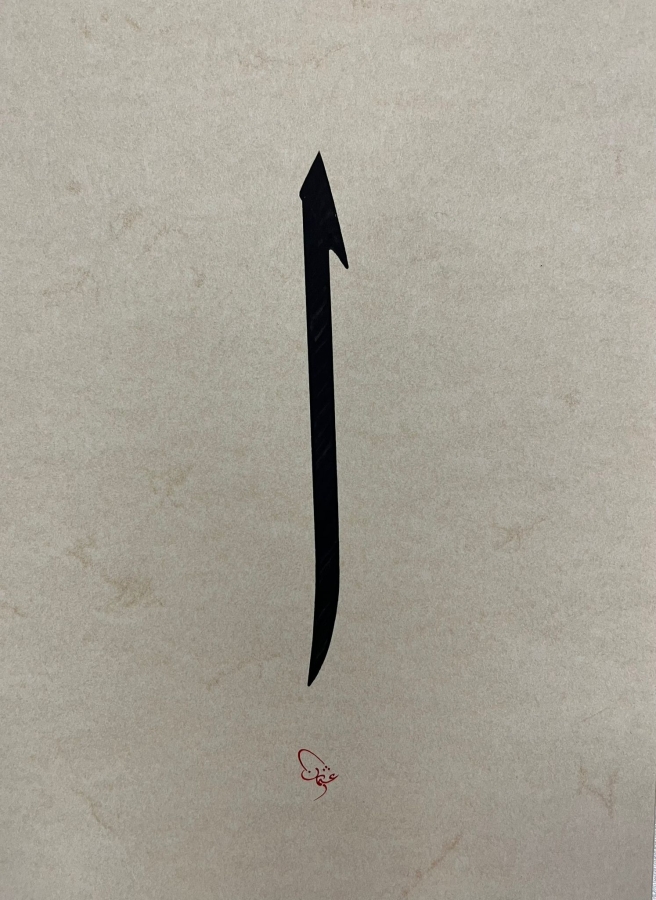 ا
عثمان